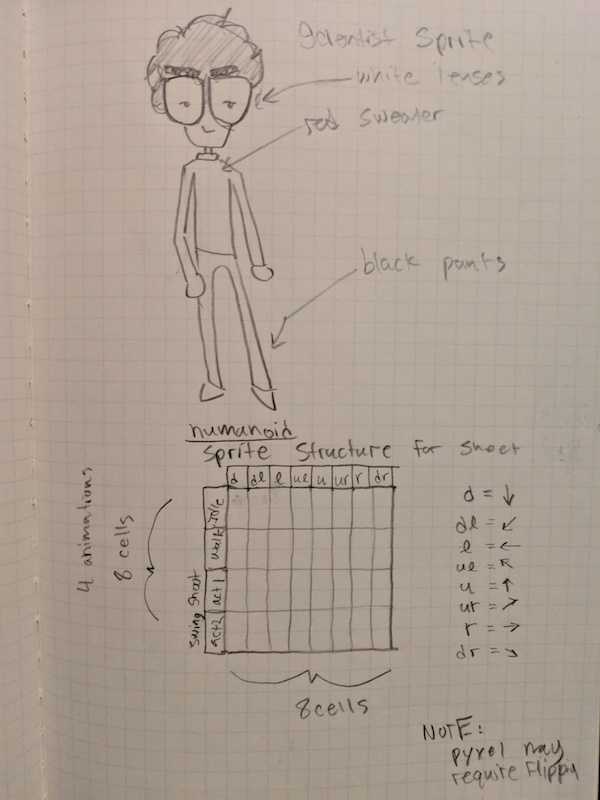 Scientist Sprite
white lenses
red sweater
black pants
humanoid
Sprite Structure for sheet
d dl l ul u ur r dr
4 animations
8 cells
idle
walk
shoot act1
swing act2
8 cells
d = ↓
dl = ↙
l = ←
ul = ↖
u = ↑
ur = ↗
r = →
dr = ↘
NOTE:
pyxel may
require flippy